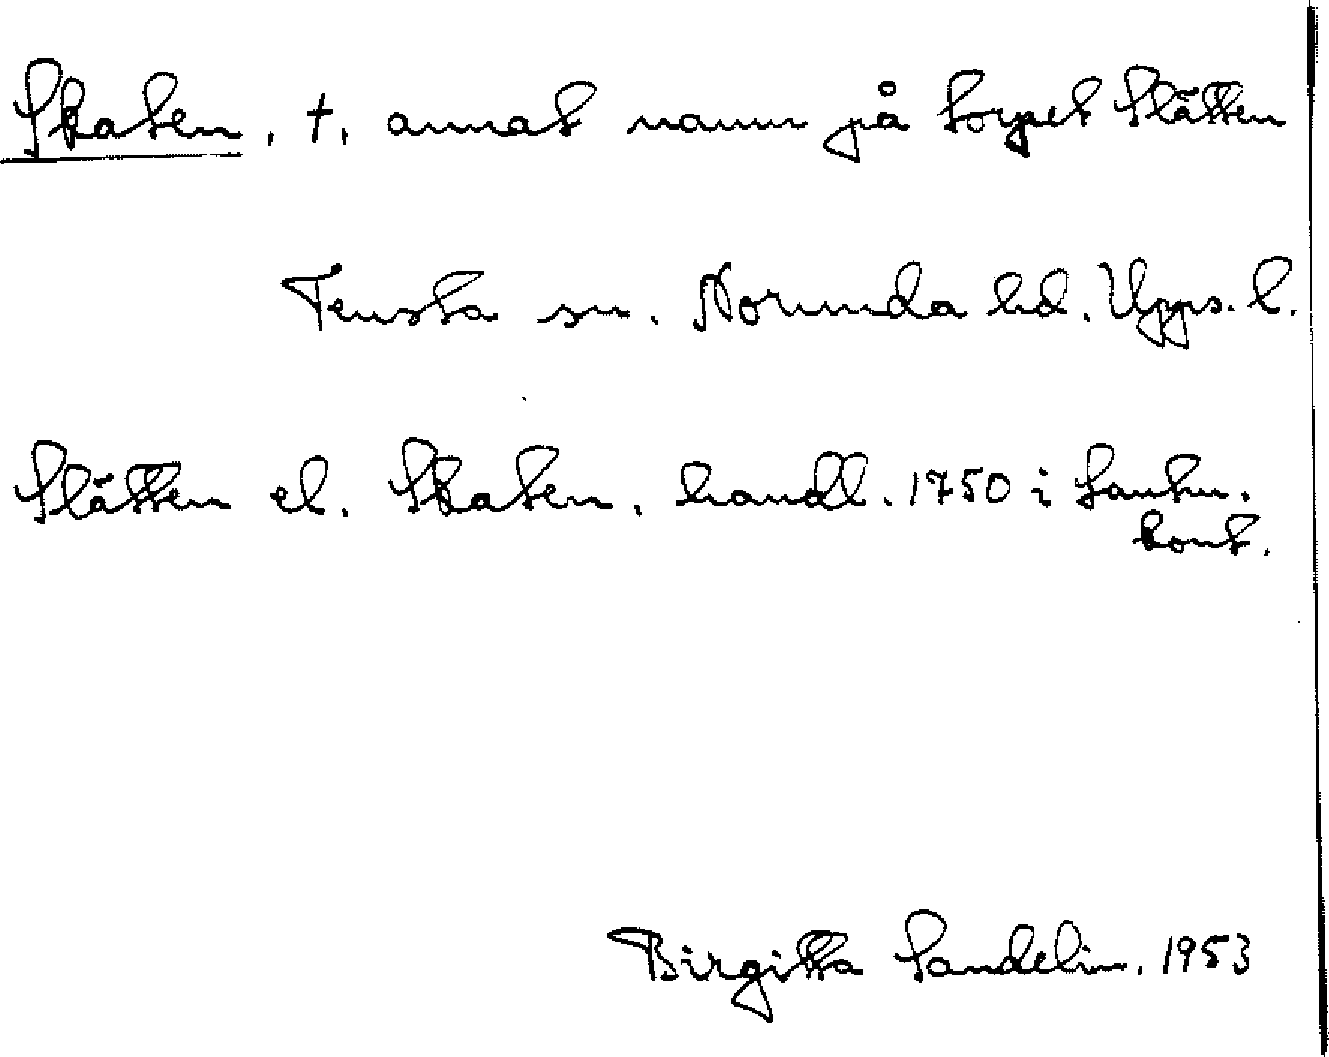 Skaten, †, annat namn på torpet Slätten
Tensta sn. Norunda hd. Upps. l.
Slätten el. Skaten, handl. 1750 i Lantm.
kont.
Birgitta Sandelin, 1953